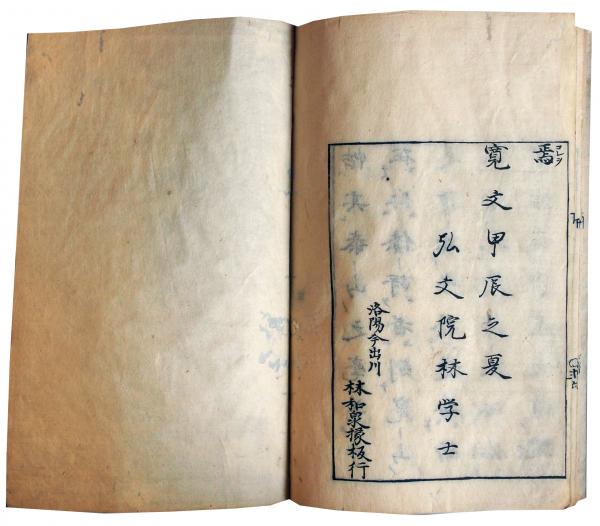 焉コレヲ
寛文甲辰之夏
弘文院林学士
洛陽今出川
林和泉掾板行